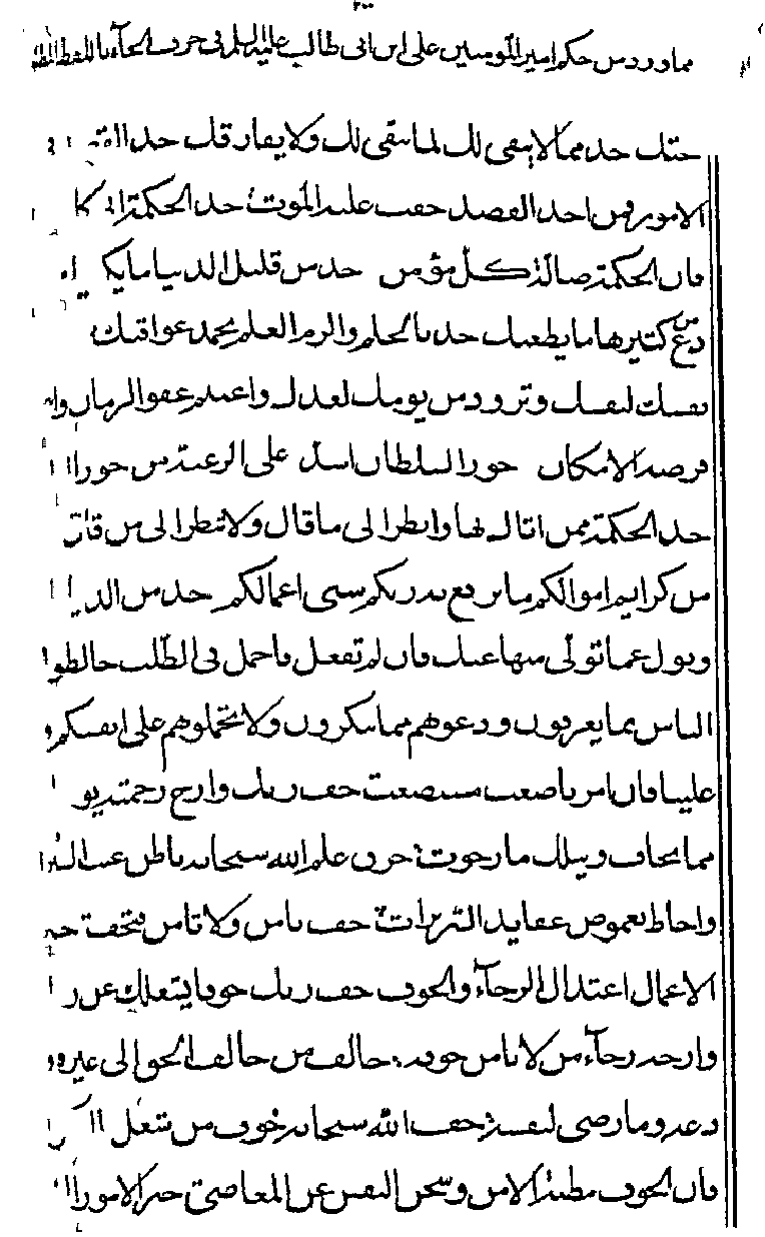 ٣٠٠
مما ورد من حكم امير المومنين على ابن ابى طالب عليه السلم فى حرف الخآء باللفظ المطلق
خذ مما لا يبقى لك لما يبقى لك ولا يفارقك خذ
الامور فمن اخذ القصد خفت عليه المون خذ الحكمة
فان الحكمة ضالة كل مؤمن خذ من قليل الدنيا ما يك
ودع من كثيرها ما يطغيك خذ بالحلم والزم العلم يحمد عواقبك
نفسك لنفسك وتزود من يومك لغدك واغتنم عفو الزمان
فرصة الامكان جور السلطان اشد على الرعية من جور
خذ الحكمة ممن اتاك بها وانظر الى ما قال ولا تنظر الى من قال
من كرايم اموالكم ما يرفع به ربكم سنى اعمالكم خذ من الد
وتول عما تولى منها عنك فان لم تفعل فاجمل فى الطلب خالطوا
الناس بما يعرفون ودعوهم مما ينكرون ولا تحملوهم على انفسكم
علينا فان امرنا صعب مستصعب خف ربك وارج رحمته يو
مما تخاف وينلك ما رجوت خرق علم الله سبحانه باطن غيب
واحاط بغموض عقايد السريرات خف تامن ولا تامن فتخف
الاعمال اعتدال الرجآء والخوف خف ربك خوفا يشغلك عن ر
وارجه رجآء من لا يامن خوفه خالف من خالف الحق الى غيره
دعه وما رضى لنفسه خف الله سبحانه خوف من شغل
فان الخوف مطية الامن وسجن النفس عن المعاصى خير الامور